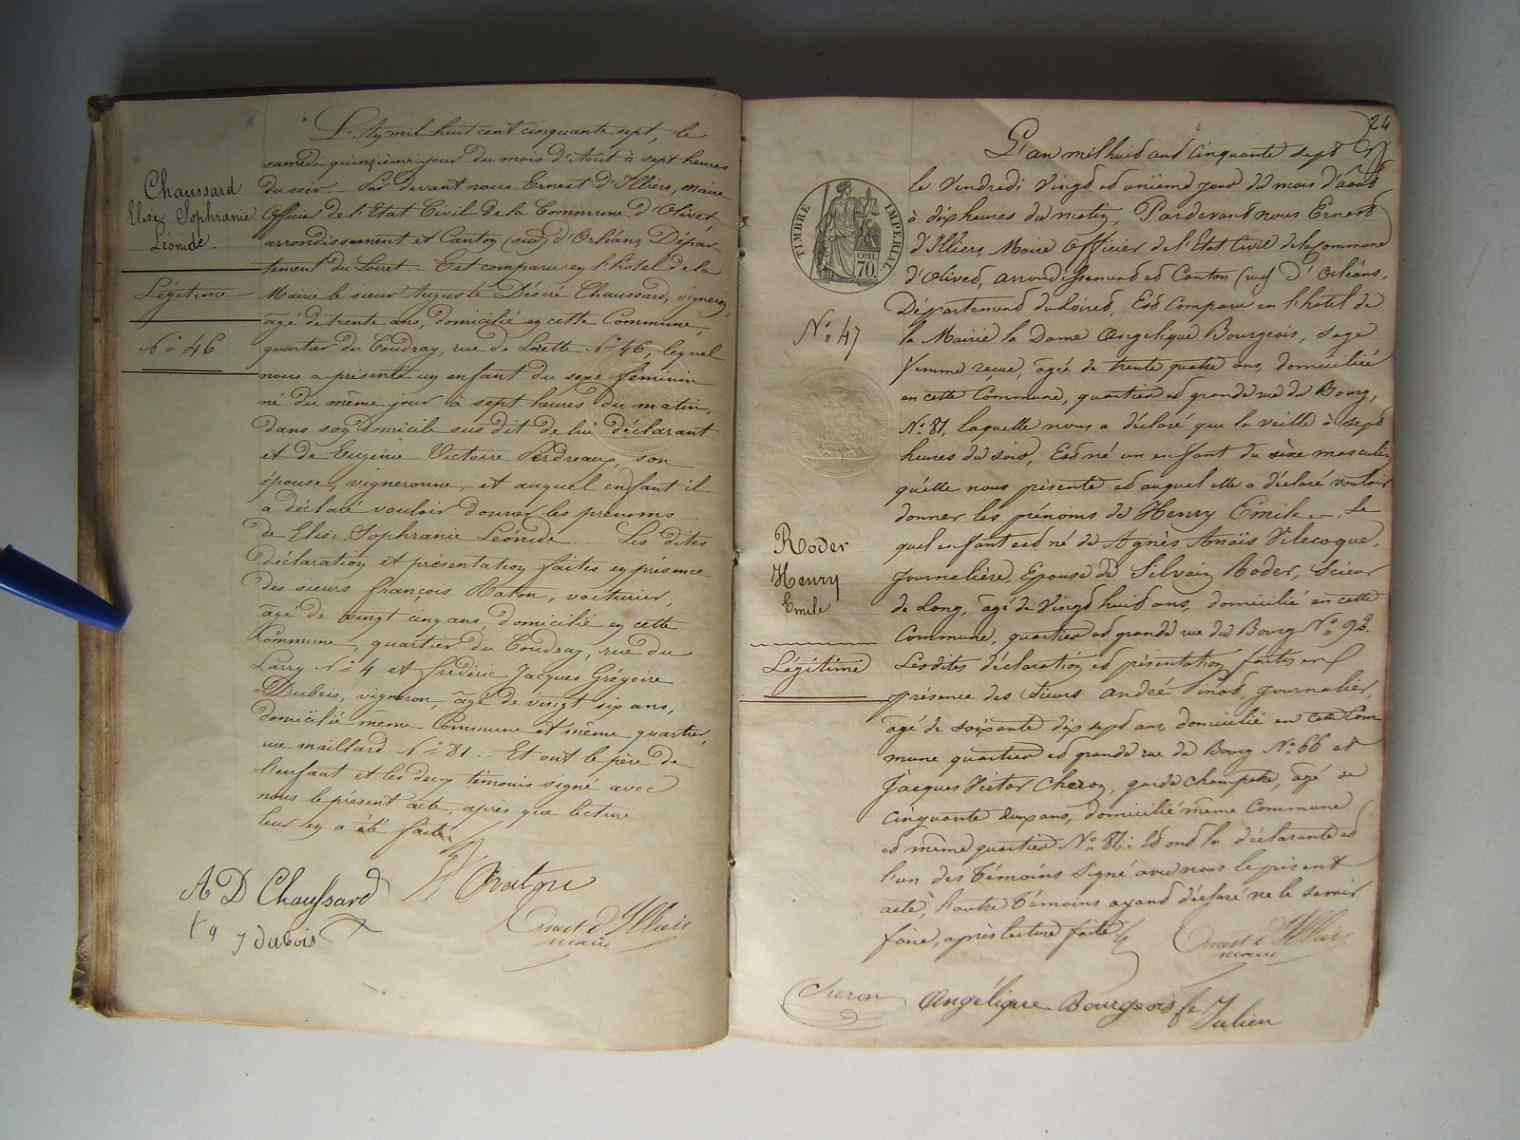 Chaussard
Elise Sophranie
Léonide.
Légitime
No 46
L'an mil huit cent cinquante sept, le
samedi quinzième jour du mois d'Août à sept heures
du soir. Par devant nous Ernest d'Illiers, maire
officier de l'Etat Civil de la Commune d'Olivet
arrondissement et Canton (sud) d'Orléans, Dépar-
tement du Loiret. Est comparu en l'hôtel de la
Mairie le sieur Auguste Désiré Chaussard, vigneron,
âgé de trente ans, domicilié en cette Commune,
quartier du Coudray, rue de Lorette No 46, lequel
nous a présenté un enfant du sexe féminin
né du même jour à sept heures du matin,
dans son domicile sus dit de lui déclarant
et de Eugénie Victoire Perdreaux, son
épouse, vigneronne, et auquel enfant il
a déclaré vouloir donner les prénoms
de Elise Sophranie Léonide. Les dites
déclaration et présentation faites en présence
des sieurs françois Raton, voiturier,
âgé de vingt cinq ans, domicilié en cette
Commune, quartier du Coudray, rue du
Larry No 4 et frédéric Jacques Grégoire
Dubois, vigneron, âgé de vingt six ans,
domicilié même Commune et même quartier,
rue maillard No 81. Et ont le père de
l'enfant et les deux témoins signé avec
nous le présent acte, après que lecture
leur en a été faite
A D Chaussard
Ernest d'Illiers
maire
J dubois
24
TIMBRE IMPERIAL
70
No 47
Roder
Henry
Emile
Légitime
L'an mil huit cent cinquante sept
le Vendredi Vingt et unième jour du mois d'août
à dix heures du matin, Pardevant nous Ernest
d'Illiers, Maire officier de l'Etat Civil de la Commune
d'Olivet, arrondissement et Canton (sud) d'Orléans,
Département du Loiret, Est comparu en l'hotel de
la Mairie la Dame Angelique Bourgeois, sage
femme reçue, âgé de trente quatre ans, domiciliée
en cette Commune, quartier et grande rue du Bourg,
No 81, laquelle nous a déclaré que la veille à sept
heures du soir, Est né un enfant du sèxe masculin
qu'elle nous présente et auquel elle a déclaré vouloir
donner les prénoms de Henry Emile. Le
quel enfant est né de Agnès Anaïs Vilecoque,
Journalière Epouse de Silvain Roder, Scieur
de Long, âgé de Vingt huit ans, domicilié en cette
Commune, quartier et grande rue du Bourg No 92.
Lesdites déclaration et présentation faites en
présence des Sieurs andré Pinot, Journalier,
âgé de soixante dix sept ans domicilié en cette Com
mune quartier et grande rue du Bourg No 66 et
Jacques Victor Cheron, garde champetre, âgé de
cinquante deux ans, domicilié même Commune
et même quartier No 81. Et ont la déclarante et
l'un des Témoins signé avec nous le présent
acte, l'autre Témoins ayant déclaré ne le savoir
faire, après lecture faite
Ernest d'Illiers
maire
Cheron
Angélique Bourgeois fe Julien